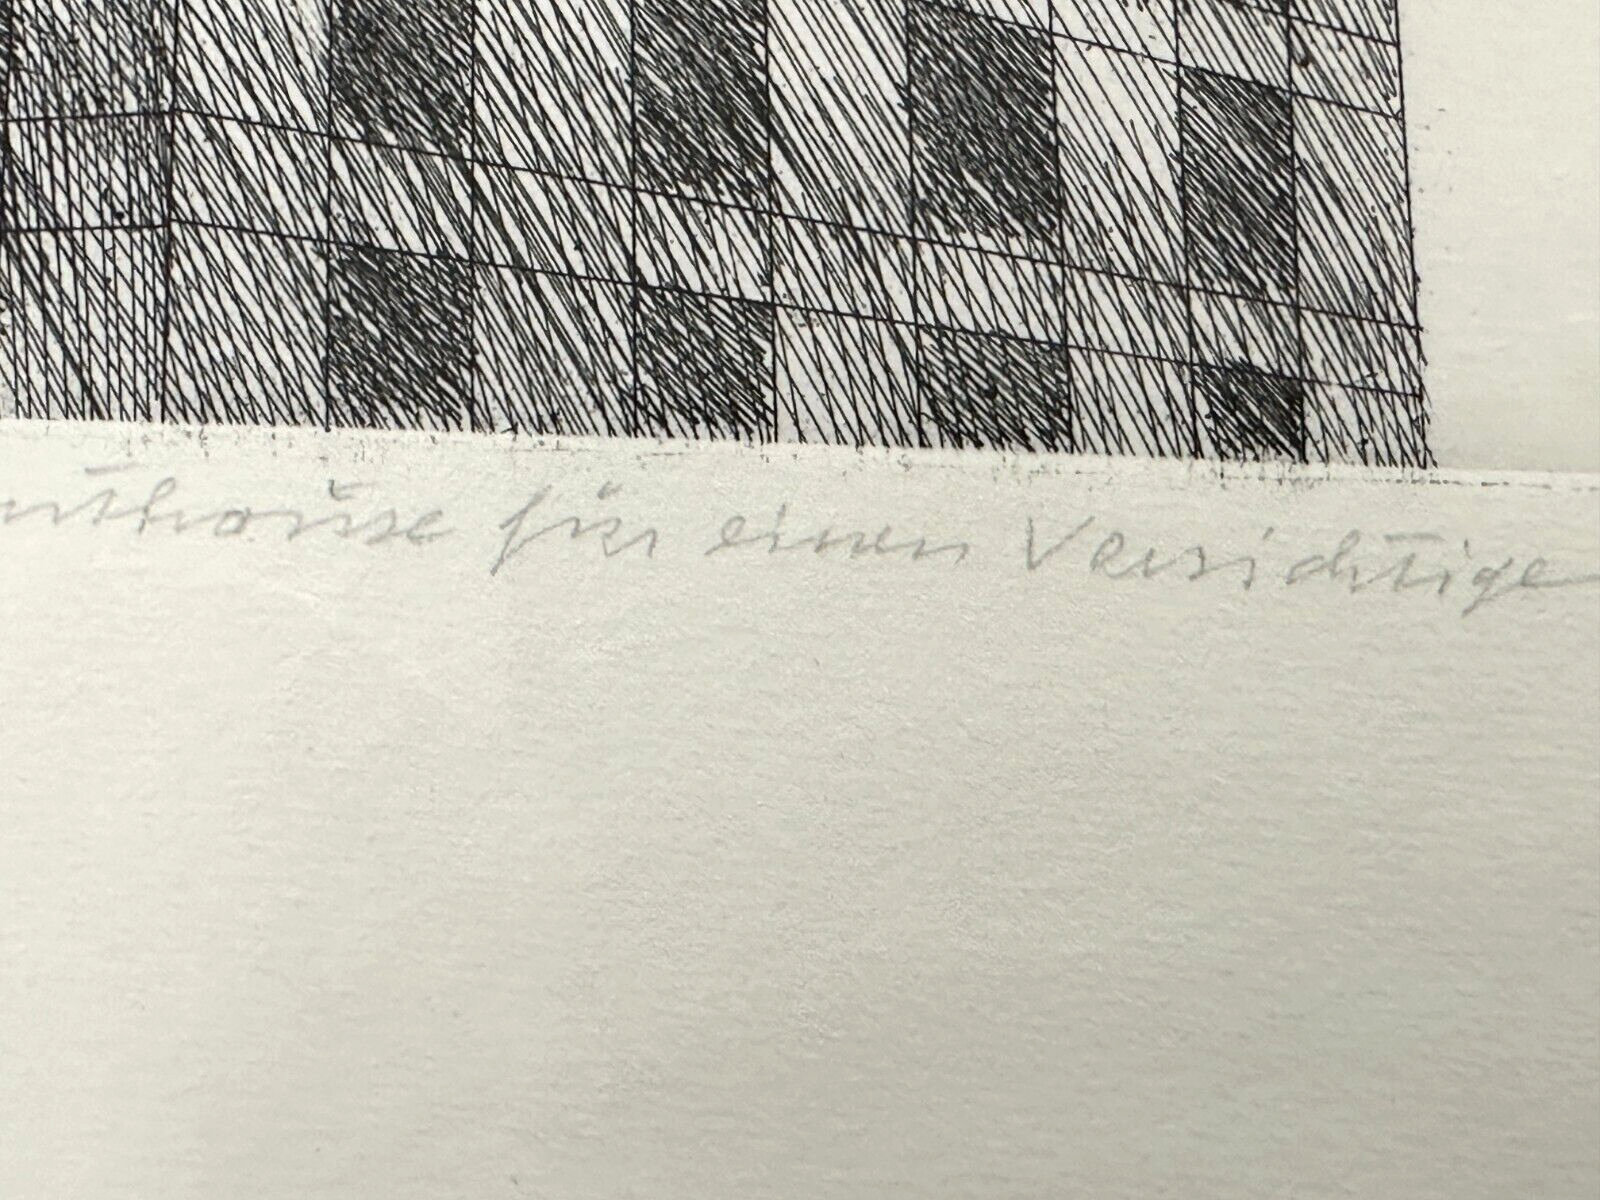 nthouse für einen Versichtige